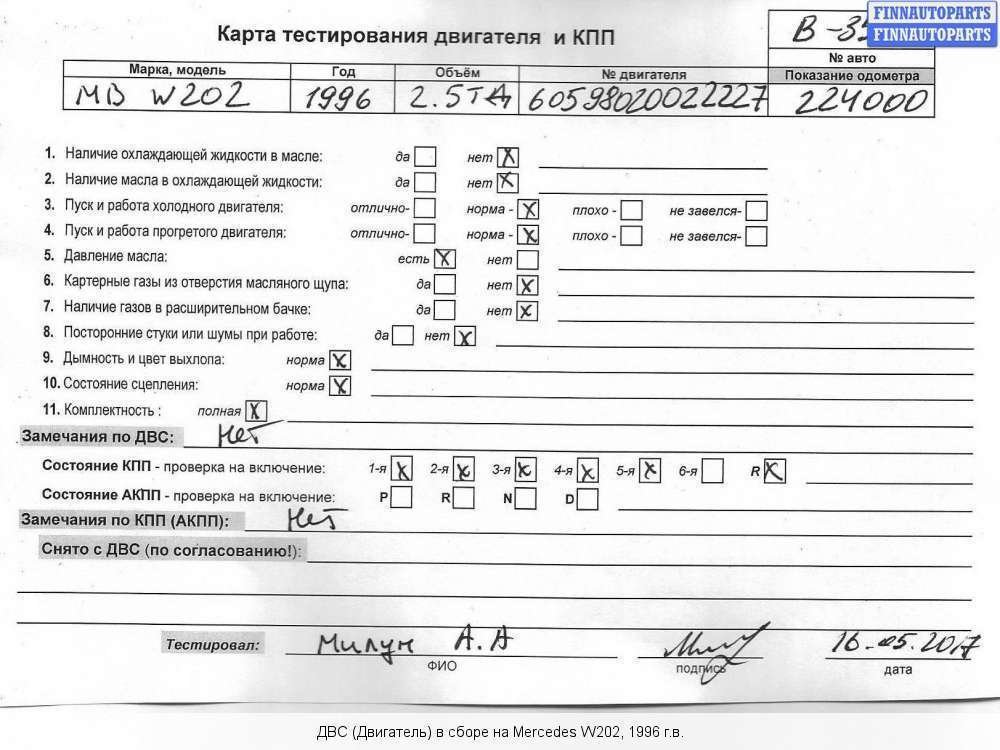 FINNAUTOPARTS
FINNAUTOPARTS
Карта тестирования двигателя и КПП
№ авто
Марка, модель Год Объём № двигателя Показание одометра
MB W202 1996 2.5ТД 60598020022227 224000
1. Наличие охлаждающей жидкости в масле: да нет X
2. Наличие масла в охлаждающей жидкости: да нет X
3. Пуск и работа холодного двигателя: отлично- норма - X плохо - не завелся-
4. Пуск и работа прогретого двигателя: отлично- норма - X плохо - не завелся-
5. Давление масла: есть X нет
6. Картерные газы из отверстия масляного щупа: да нет X
7. Наличие газов в расширительном бачке: да нет X
8. Посторонние стуки или шумы при работе: да нет X
9. Дымность и цвет выхлопа: норма X
10. Состояние сцепления: норма X
11. Комплектность : полная X
Замечания по ДВС: Нет
Состояние КПП - проверка на включение: 1-я X 2-я X 3-я X 4-я X 5-я X 6-я R X
Состояние АКПП - проверка на включение: P R N D
Замечания по КПП (АКПП): Нет
Снято с ДВС (по согласованию!):
Тестировал: Милун А.А 16.05.2017
ФИО подпись дата
ДВС (Двигатель) в сборе на Mercedes W202, 1996 г.в.